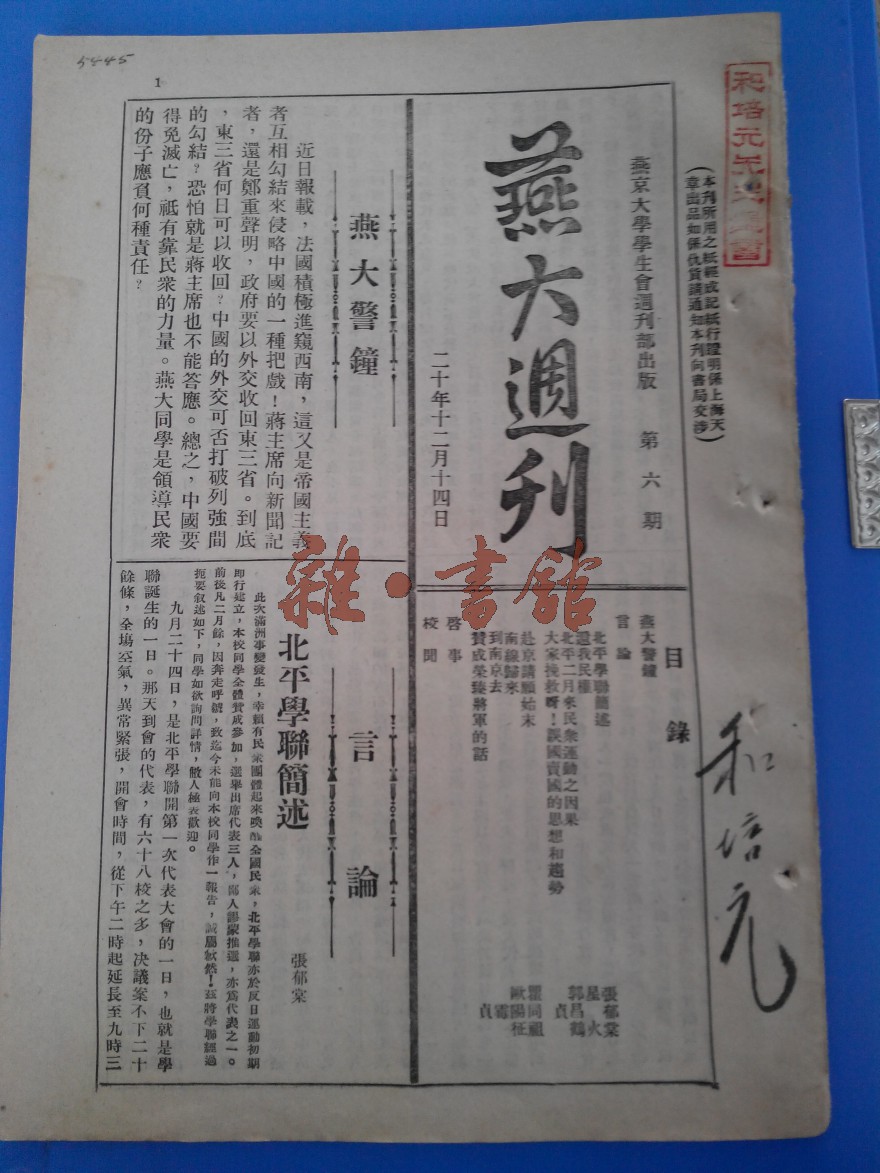 5445
1
和培元
(本刊所用之紙經成記紙行證明係上海天
章出品如係仇貨請通知本刊向書局交涉)
燕京大學學生會週刊部出版　第六期
燕大週刊
二十年十二月十四日
目錄
燕大警鐘
言論
北平學聯簡述　張郁棠
還我民權　星火
北平二月來民衆運動之因果　郭昌鶴
大家挽救呀!誤國賣國的思想和趨勢　貞
赴京請願始末　瞿同祖
南線歸來　歐陽征
到南京去　霄
贊成榮臻將軍的話　貞
啓事
校聞
燕大警鐘
近日報載，法國積極進窺西南，這又是帝國主義
者互相勾結來侵略中國的一種把戲！蔣主席向新聞記
者，還是鄭重聲明，政府要以外交收回東三省。到底
，東三省何日可以收回？中國的外交可否打破列強間
的勾結？恐怕就是蔣主席也不能答應。總之，中國要
得免滅亡，祗有靠民衆的力量。燕大同學是領導民衆
的份子應負何種責任？
言論
北平學聯簡述
張郁棠
此次滿洲事變發生，幸賴有民衆團體起來喚醒全國民衆，北平學聯亦於反日運動初期
即行建立，本校同學全體贊成參加，選舉出席代表三人，鄙人謬蒙推選，亦爲代表之一。
前後凡二月餘，因奔走呼號，致迄今未能向本校同學作一報告，誠屬歉然！茲將學聯經過
扼要叙述如下，同學如欲詢問詳情，敝人極表歡迎。
九月二十四日，是北平學聯開第一次代表大會的一日，也就是學
聯誕生的一日。那天到會的代表，有六十八校之多，决議案不下二十
餘條，全塲空氣，異常緊張，開會時間，從下午二時起延長至九時三
雜·書館